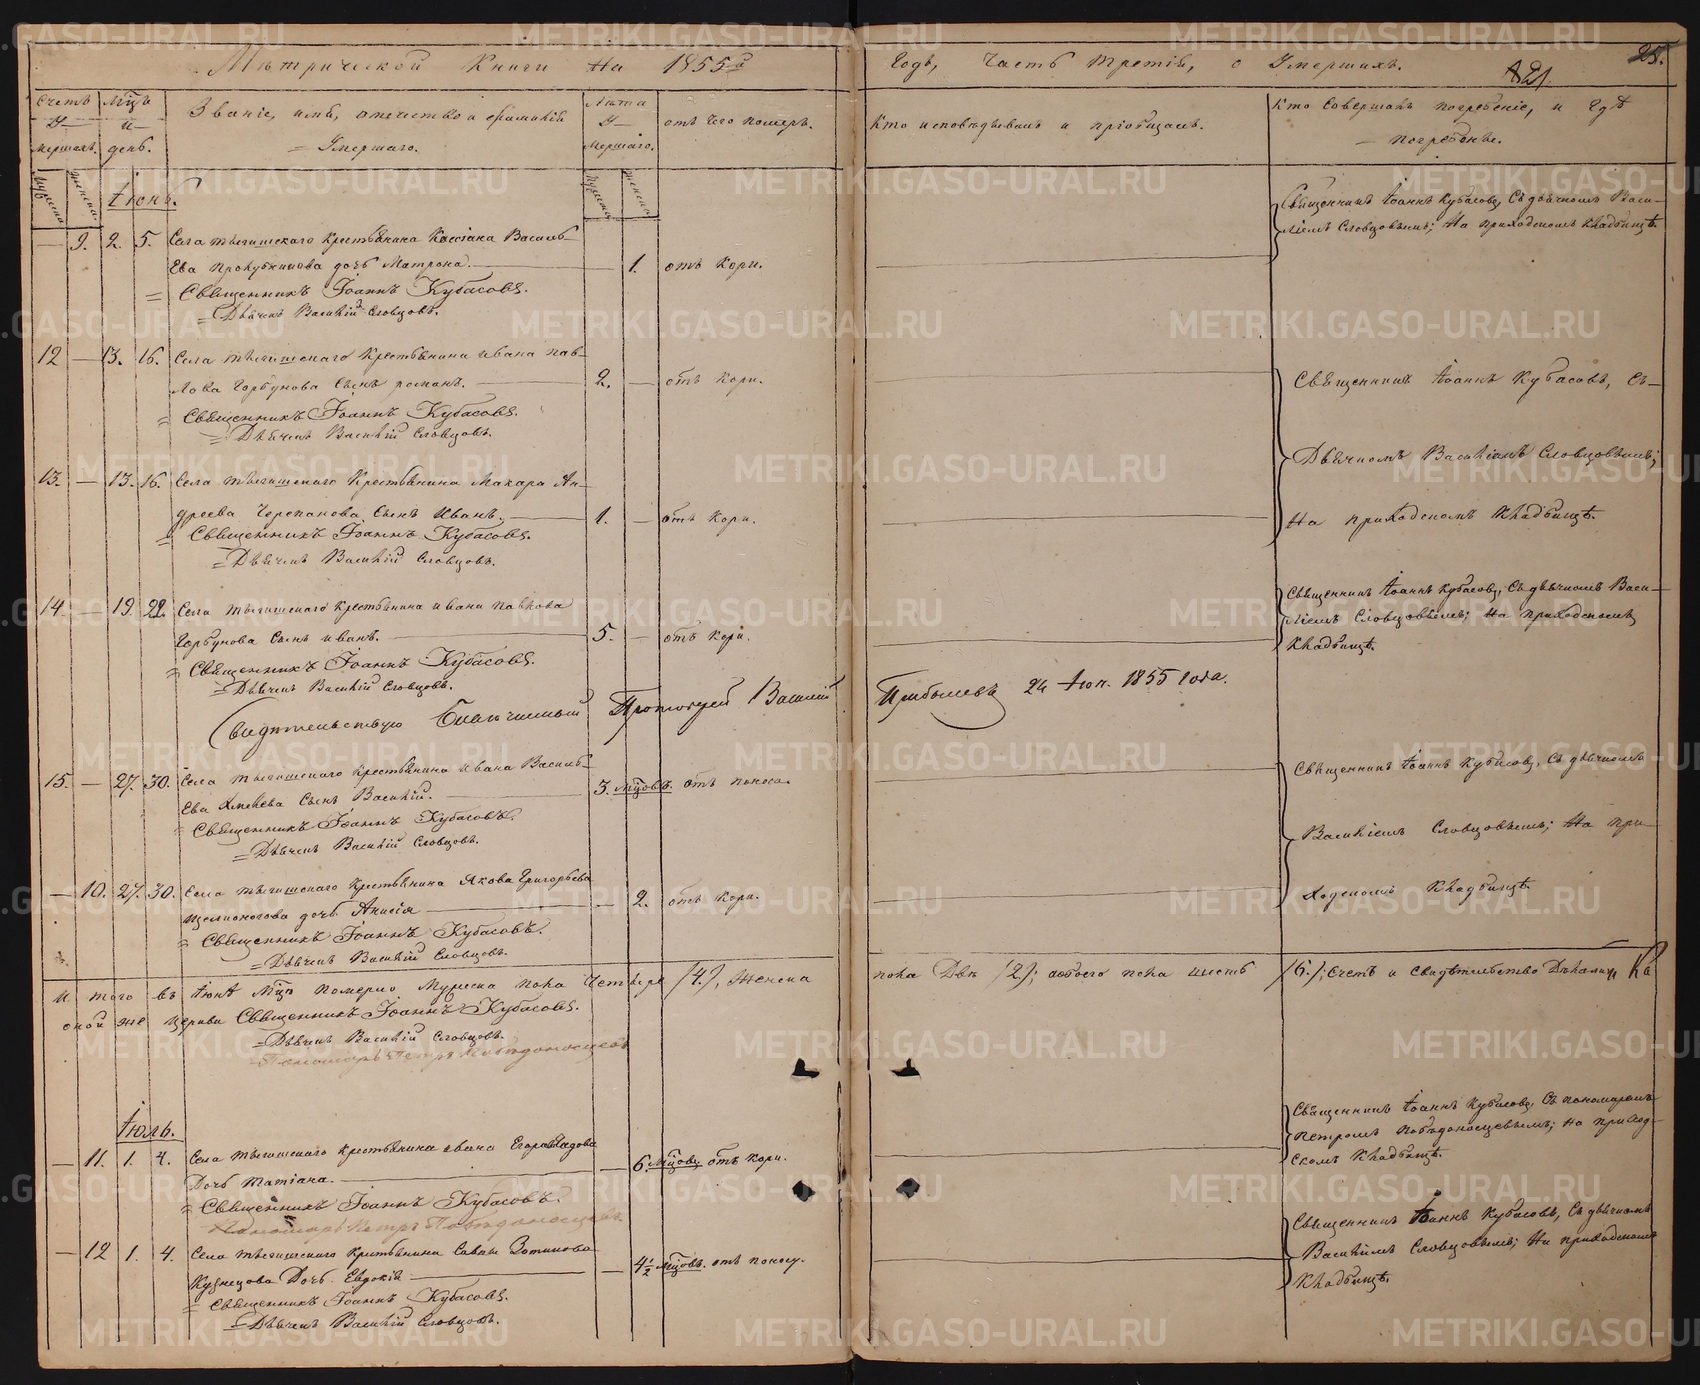 Метрической Книги на 1855й
Годъ, Часть третія, о Умершихъ.
821.
25.
Счетъ У-мершихъ.
Мцъ и день.
Званіе, имя, отечество и фамилія Умершаго.
Лѣта У-мершаго.
отъ чего померъ.
Кто исповѣдывалъ и пріобщалъ.
Кто Совершалъ погребеніе, и гдѣ погребены.
Іюнь.
— 9. 2. 5. Села Тыгишскаго Крестьянина Кассіана Василь-
ева Прокубининова дочь Матрона. — 1. отъ Кори.
Священникъ Іоаннъ Кубасовъ, Съ дьячкомъ Васи-
ліемъ Словцовымъ; На приходскомъ Кладбищѣ.
= Священникъ Іоаннъ Кубасовъ.
= Дьячекъ Василій Словцовъ.
12 — 13. 16. Села Тыгишскаго Крестьянина Ивана Пав-
лова Горбунова Сынъ романъ. 2. — отъ Кори.
= Священникъ Іоаннъ Кубасовъ.
= Дьячекъ Василій Словцовъ.
Священникъ Іоаннъ Кубасовъ, Съ-
Дьячкомъ Василіемъ Словцовымъ;
На приходскомъ Кладбищѣ.
13. — 13. 16. Села Тыгишскаго Крестьянина Макара Ан-
дреева Черепанова Сынъ Иванъ. 1. — отъ Кори.
= Священникъ Іоаннъ Кубасовъ.
= Дьячекъ Василій Словцовъ.
14. — 19. 22. Села Тыгишскаго Крестьянина Ивана Павлова
Горбунова Сынъ Иванъ. 5. — отъ Кори.
Священникъ Іоаннъ Кубасовъ, Съ дьячкомъ Васи-
ліемъ Словцовымъ; На приходскомъ
Кладбищѣ.
= Священникъ Іоаннъ Кубасовъ.
= Дьячекъ Василій Словцовъ.
Свидѣтельствую Благочинный Протоіерей Василій
Прибылевъ 24 Іюн. 1855 года.
15. — 27. 30. Села Тыгишскаго Крестьянина Ивана Василь-
ева Сынъ Василій. 3. мцовъ. отъ поноса.
= Священникъ Іоаннъ Кубасовъ.
= Дьячекъ Василій Словцовъ.
Священникъ Іоаннъ Кубасовъ, Съ дьячкомъ
Василіемъ Словцовымъ; На при-
ходскомъ Кладбищѣ.
— 10. 27. 30. Села Тыгишскаго Крестьянина Якова Григорьева
дочь Анисія — 2. отъ Кори.
= Священникъ Іоаннъ Кубасовъ.
= Дьячекъ Василій Словцовъ.
И того въ Іюнѣ Мцѣ померло Мужеска пола Четыре /4/, Женска
пола Двѣ /2/; обоего пола шесть /6/; Счетъ и свидѣтельство Дѣлали
оной же церкви Священникъ Іоаннъ Кубасовъ.
= Дьячекъ Василій Словцовъ.
Пономарь Петръ Побѣдоносцевъ
Іюль.
— 11. 1. 4. Села Тыгишскаго Крестьянина Ивана Егорова
Дочь Татіана. — 6. Мцовъ отъ Кори.
Священникъ Іоаннъ Кубасовъ, Съ пономаремъ
Петромъ Побѣдоносцевымъ; На приход-
скомъ Кладбищѣ.
= Священникъ Іоаннъ Кубасовъ.
Пономарь Петръ Побѣдоносцевъ
— 12 1. 4. Села Тыгишскаго Крестьянина Саввы Зотикова
Кузнецова Дочь Евдокія — 4½ Мцовъ. отъ поносу.
= Священникъ Іоаннъ Кубасовъ.
= Дьячекъ Василій Словцовъ.
Священникъ Іоаннъ Кубасовъ, Съ дьячкомъ
Василіемъ Словцовымъ; На приходскомъ
Кладбищѣ.
METRIKI.GASO-URAL.RU